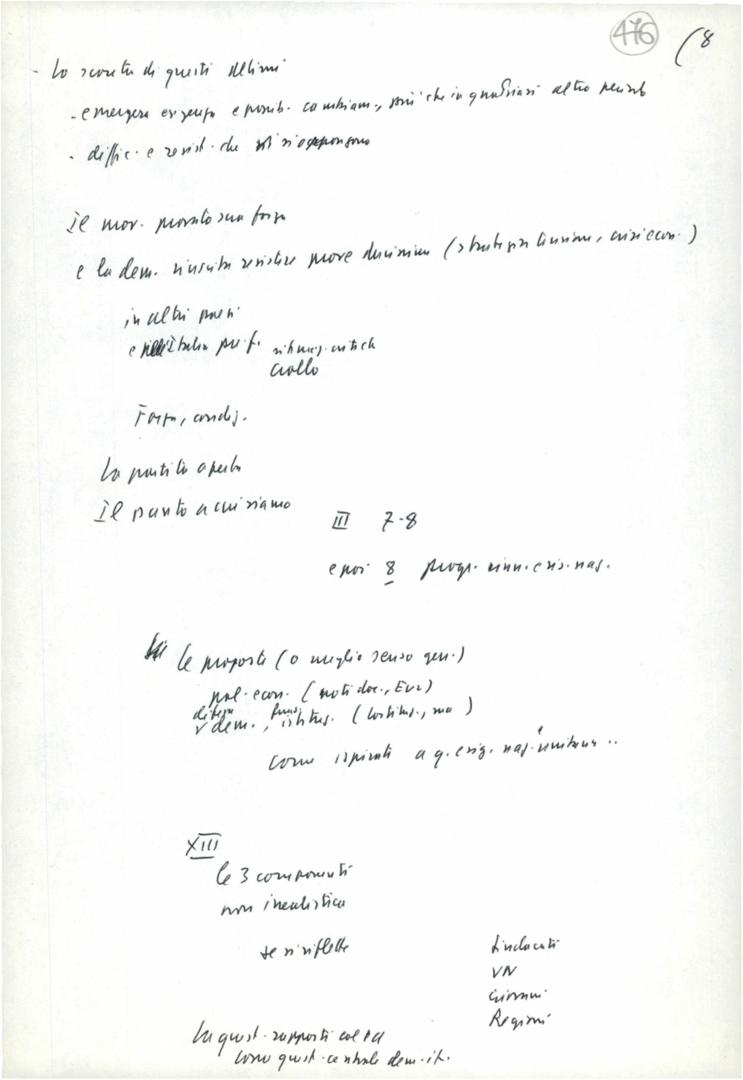 476 (8
- Lo scontro di questi ultimi
- emergere esigenza e possib. cambiam., più che in qualsiasi altro periodo
- diffic. e resist. che vi si oppongono
Il mov. mostrato sua forza
e la dem. riuscita resistere prove durissime (strategia tensione, crisi econ.)
in altri paesi
e nell'Italia pref.
crollo
Forza, condiz.
La partita aperta
Il punto a cui siamo
III 7-8
e poi 8 progr. rinn. e ris. naz.
le proposte (o meglio senso gen.)
pol. econ. (noti doc., Eur)
difesa dem., funz. istituz. (costituz., ma)
come ispirati a q. esig. naz. unitaria ..
XIII
le 3 componenti
non irrealistica
se si riflette
Sindacati
VN
Giovani
Regioni
La quest. rapporti col PCI
come quest. centrale dem. it.